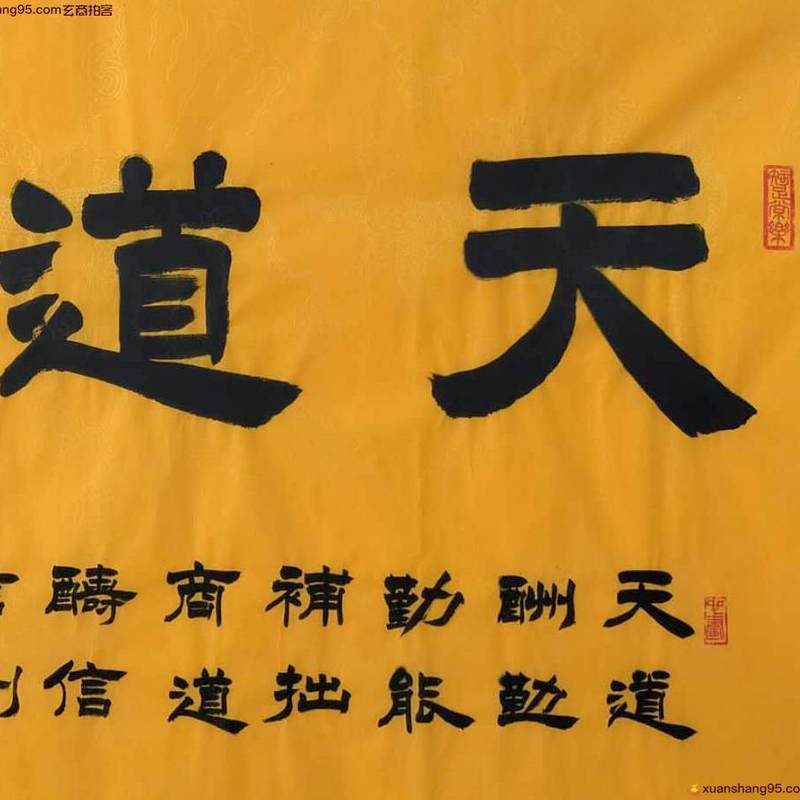 ang95.com玄商拍客
知足常樂
天道
天道
酬勤
勤能
補拙
商道
醻信
xuanshang95.co